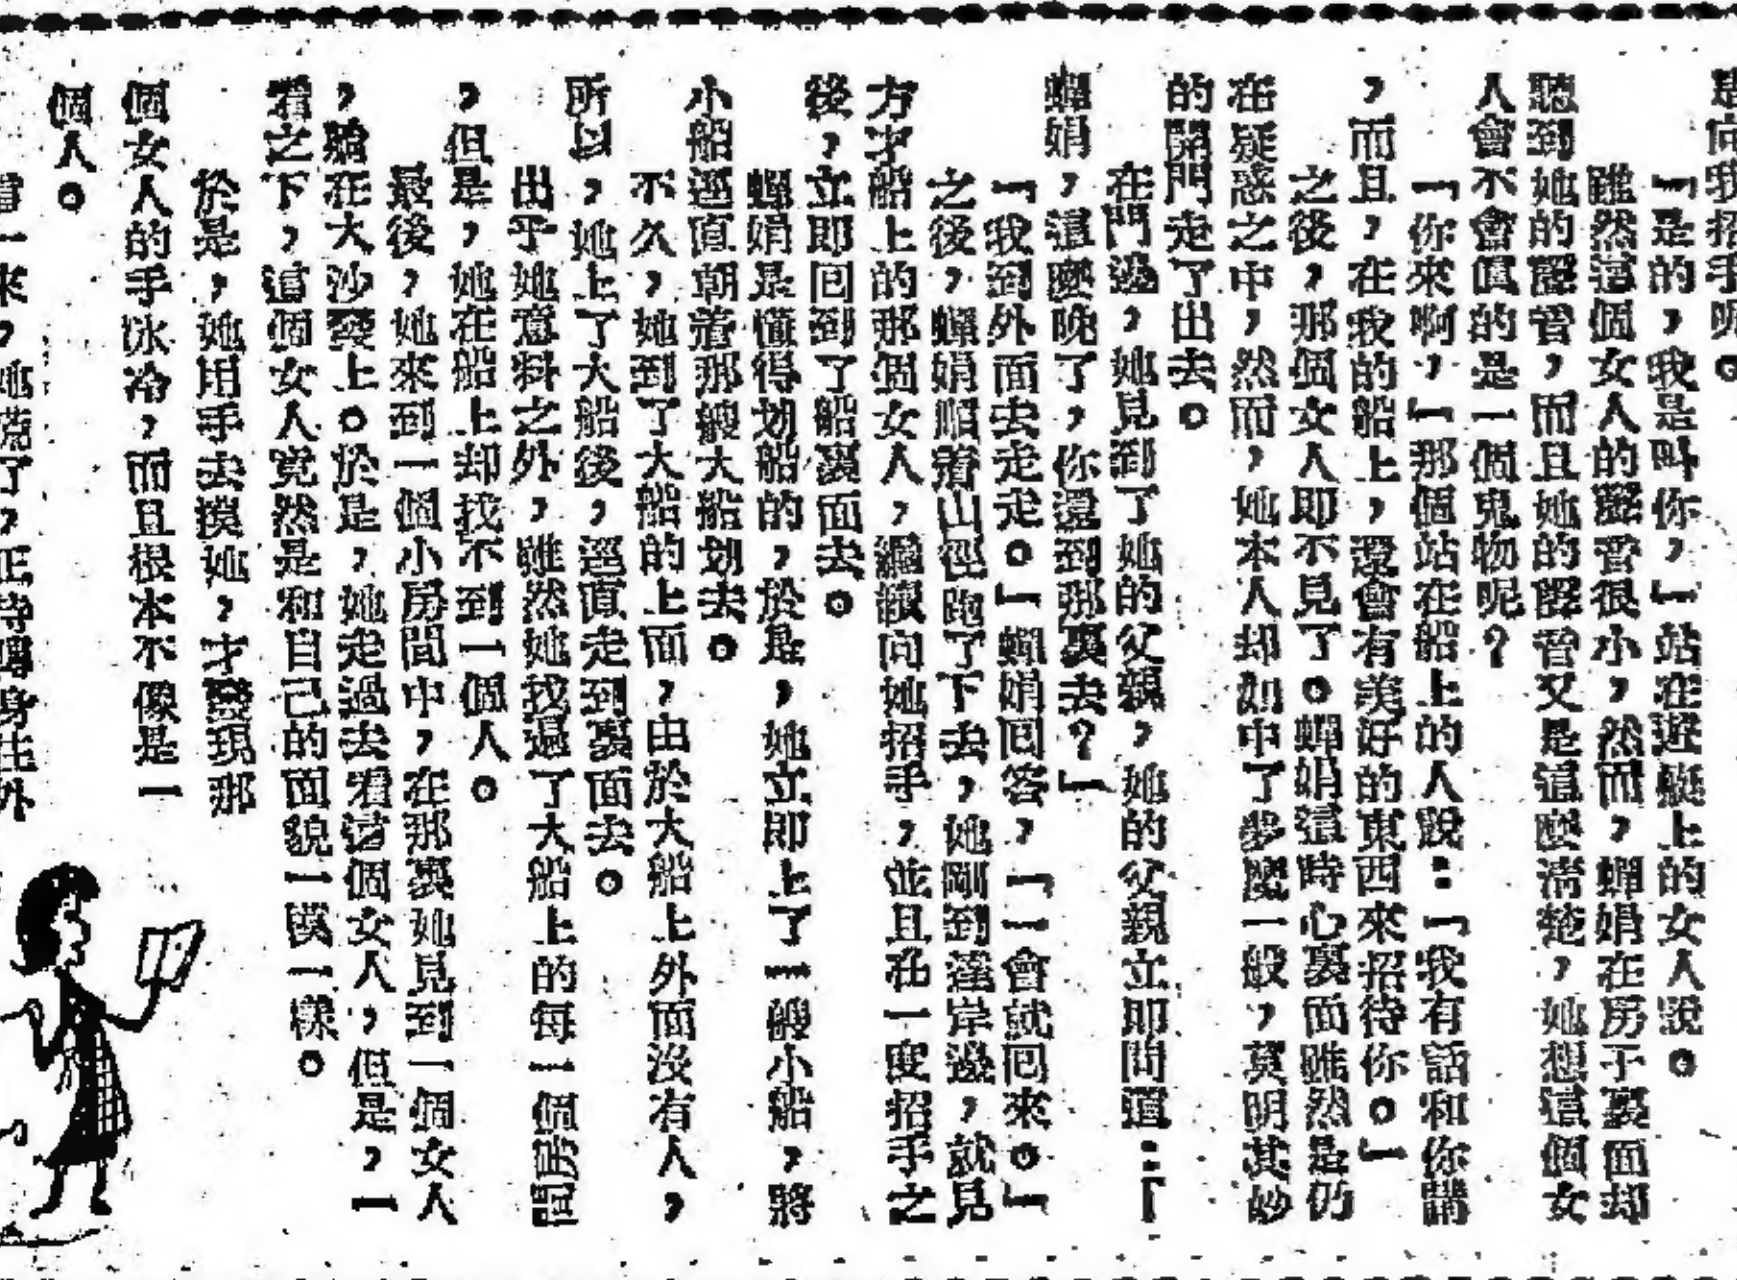 是向我招手呢。
「是的，我是叫你，」站在遊艇上的女人說。
雖然這個女人的聲音很小，然而，蟬娟在房子裏面却
聽到她的聲音，而且她的聲音又是這麼清楚，她想這個女
人會不會真的是一個鬼物呢？
「你來啊，」那個站在船上的人說：「我有話和你講
，而且，在我的船上，還會有美好的東西來招待你。」
之後，那個女人即不見了。蟬娟這時心裏面雖然是仍
在疑惑之中，然而，她本人却如中了夢魘一般，莫明其妙
的開門走了出去。
在門邊，她見到了她的父親，她的父親立即問道：「
蟬娟，這麼晚了，你還到那裏去？」
「我到外面去走走。」蟬娟回答，「一會就回來。」
之後，蟬娟沿着山徑跑了下去，她剛到達岸邊，就見
方才船上的那個女人，繼續向她招手，並且在一度招手之
後，立即回到了船裏面去。
蟬娟是懂得划船的，於是，她立即上了一艘小船，將
小船逕直朝着那艘大船划去。
不久，她到了大船的上面，由於大船上外面沒有人，
所以，她上了大船後，逕直走到裏面去。
出乎她意料之外，雖然她找過了大船上的每一個房間
，但是，她在船上却找不到一個人。
最後，她來到一個小房間中，在那裏她見到一個女人
，躺在大沙發上。於是，她走過去看這個女人，但是，一
看之下，這個女人竟然是和自己的面貌一模一樣。
於是，她用手去摸她，才發現那
個女人的手冰冷，而且根本不像是一
個人。
當一來，她慌了，正待轉身往外